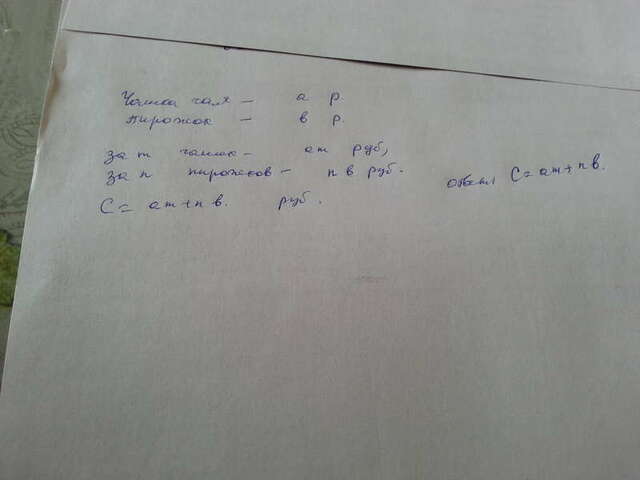 Чашка чая – а р
Пирожок – в р.
за m чашек – am руб,
за n пирожков – n в руб.
C = am + n в. руб.
ответ C = am + n в.